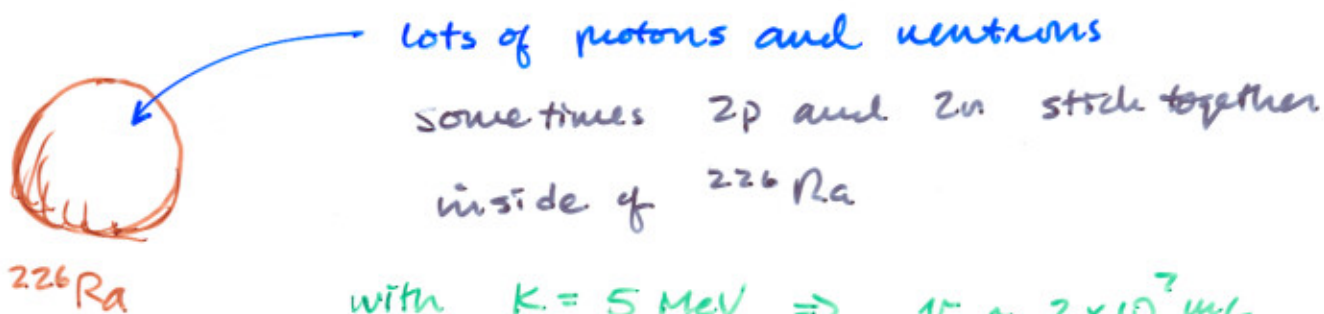 lots of protons and neutrons
sometimes 2p and 2n stick together
inside of ²²⁶Ra
²²⁶Ra
with K = 5 MeV ⇒ v ≈ 2×10⁷ m/s